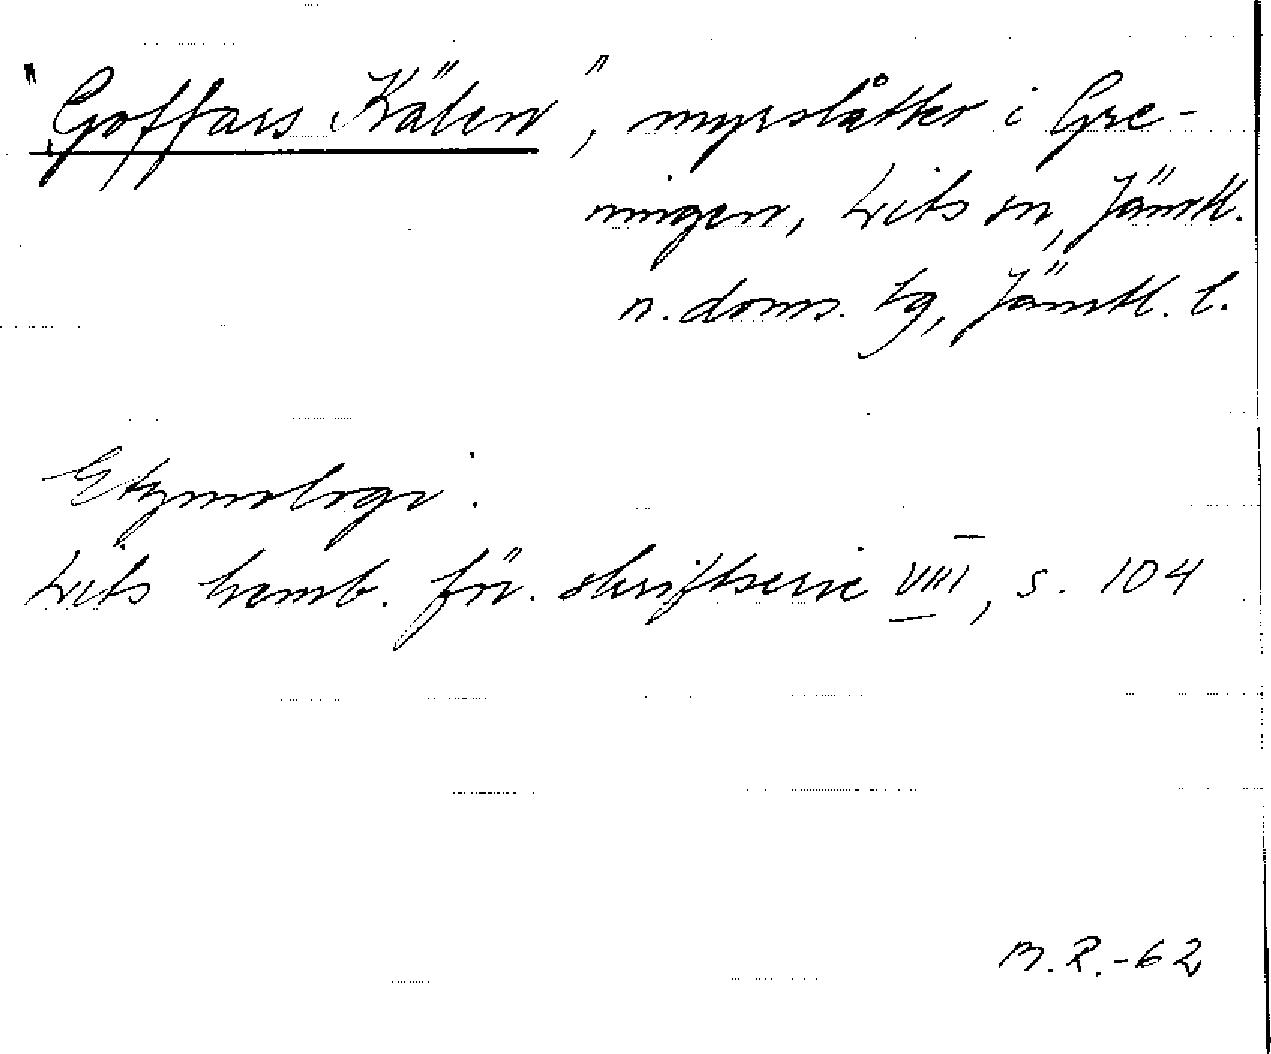 "Goffars Kälen", myrslåtter i Gre-
ningen, Lits sn, Jämtl.
n. doms. tg, Jämtl. l.
Etymologi:
Lits hemb. för. skriftserie VIII, s. 104
M.R.-62